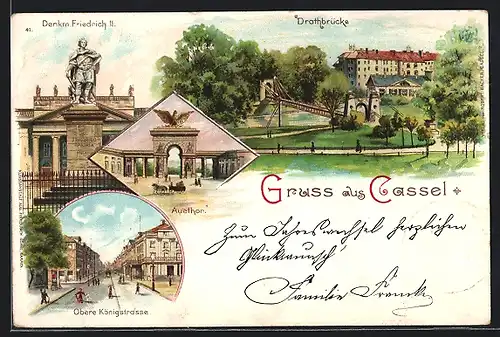 41.
Denkm. Friedrich II.
Drathbrücke
Auethor.
Gruss aus Cassel
Obere Königstrasse
Zum Jahreswechsel herzlichen
Glückwunsch!
Familie Franck